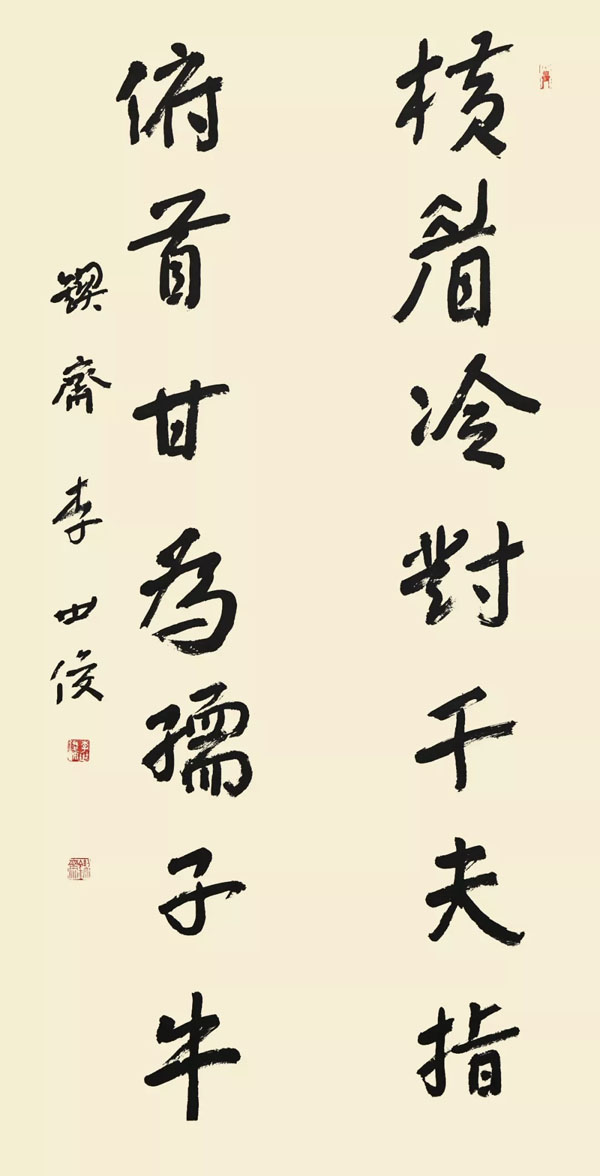 横眉冷對千夫指
俯首甘為孺子牛
鍥齋李世俊